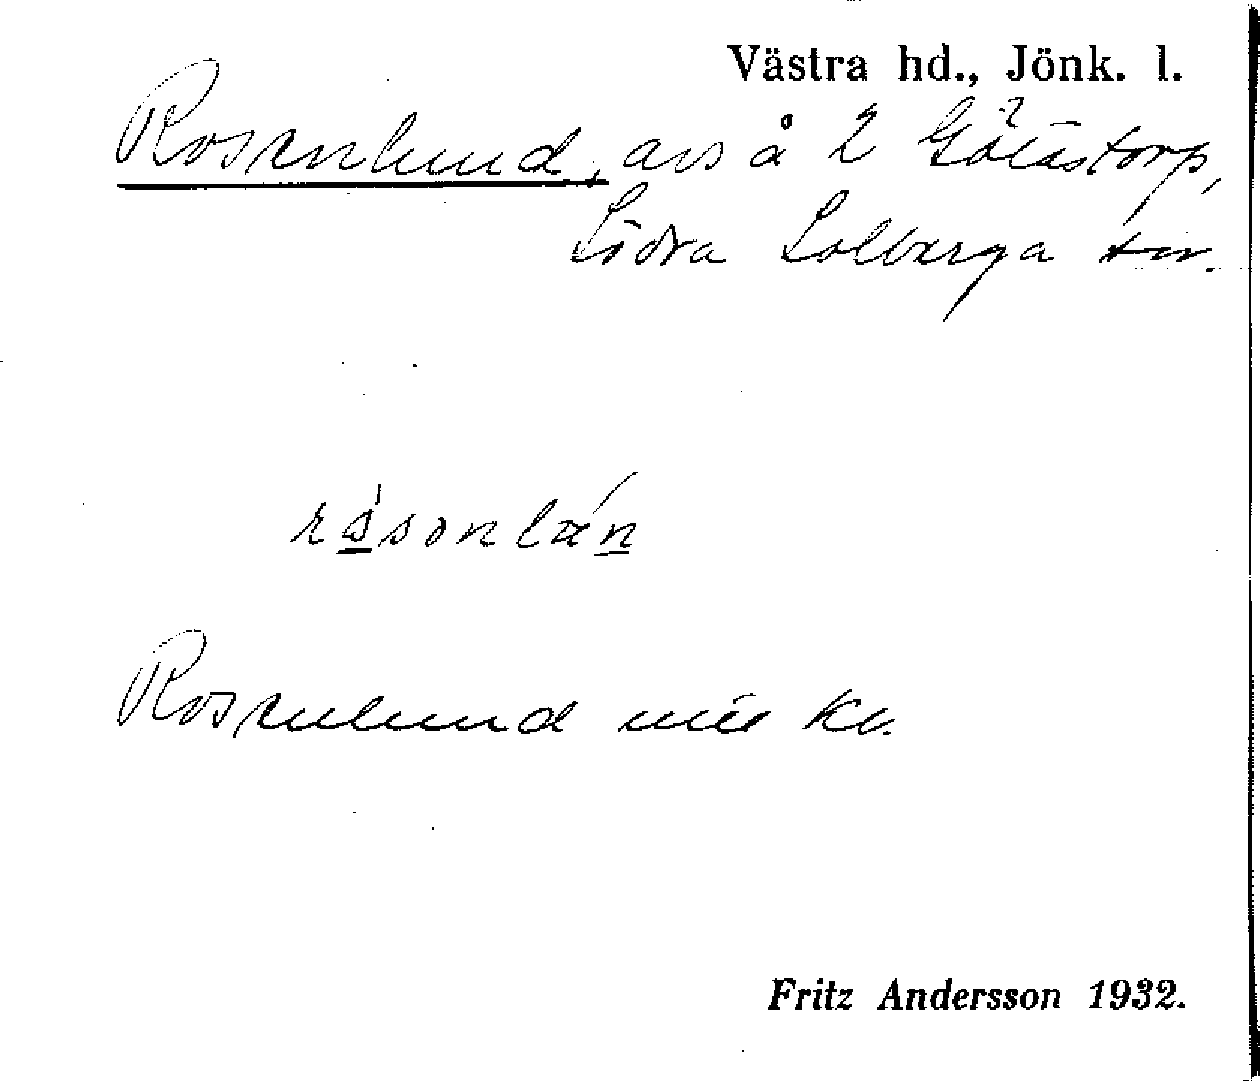 Västra hd., Jönk. l.
Rosenlund, avs å 2 Götastorp,
Södra Solberga sn.
råsonlan
Rosenlund
Fritz Andersson 1932.